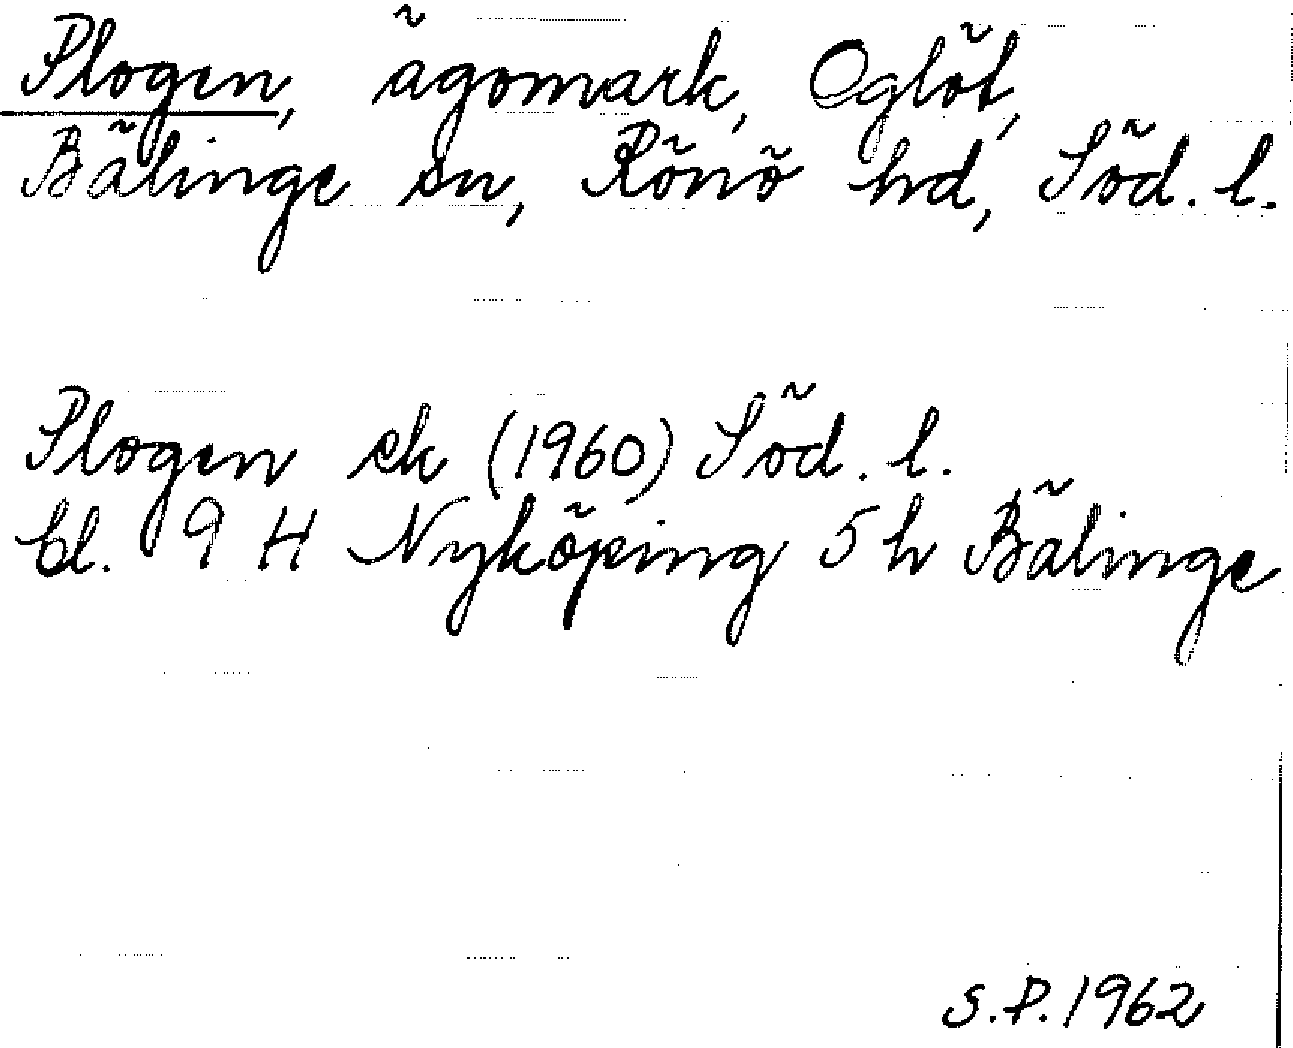 Plogen, ägomark, Oglöt,
Bälinge sn, Rönö hd, Söd. l.
Plogen ek (1960) Söd. l.
bl. 9 H Nyköping 5 h Bälinge
S.P. 1962